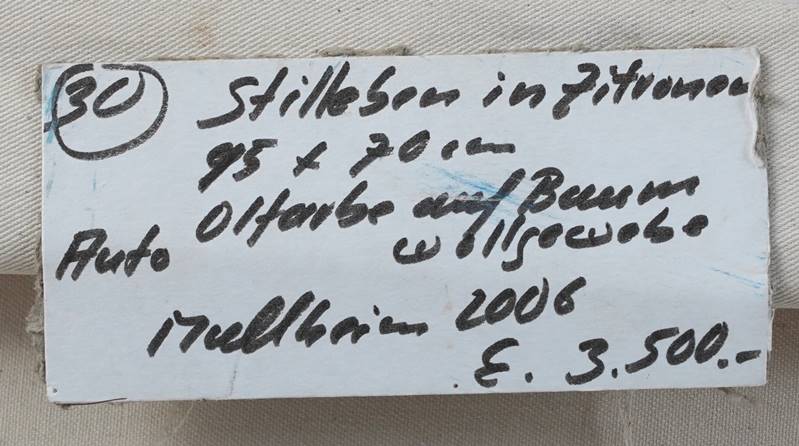 30 Stilleben in Zitronen
95 x 70 cm
Ölfarbe auf Baum
wollgewebe
Auto
Mullheim 2006
E. 3.500.-